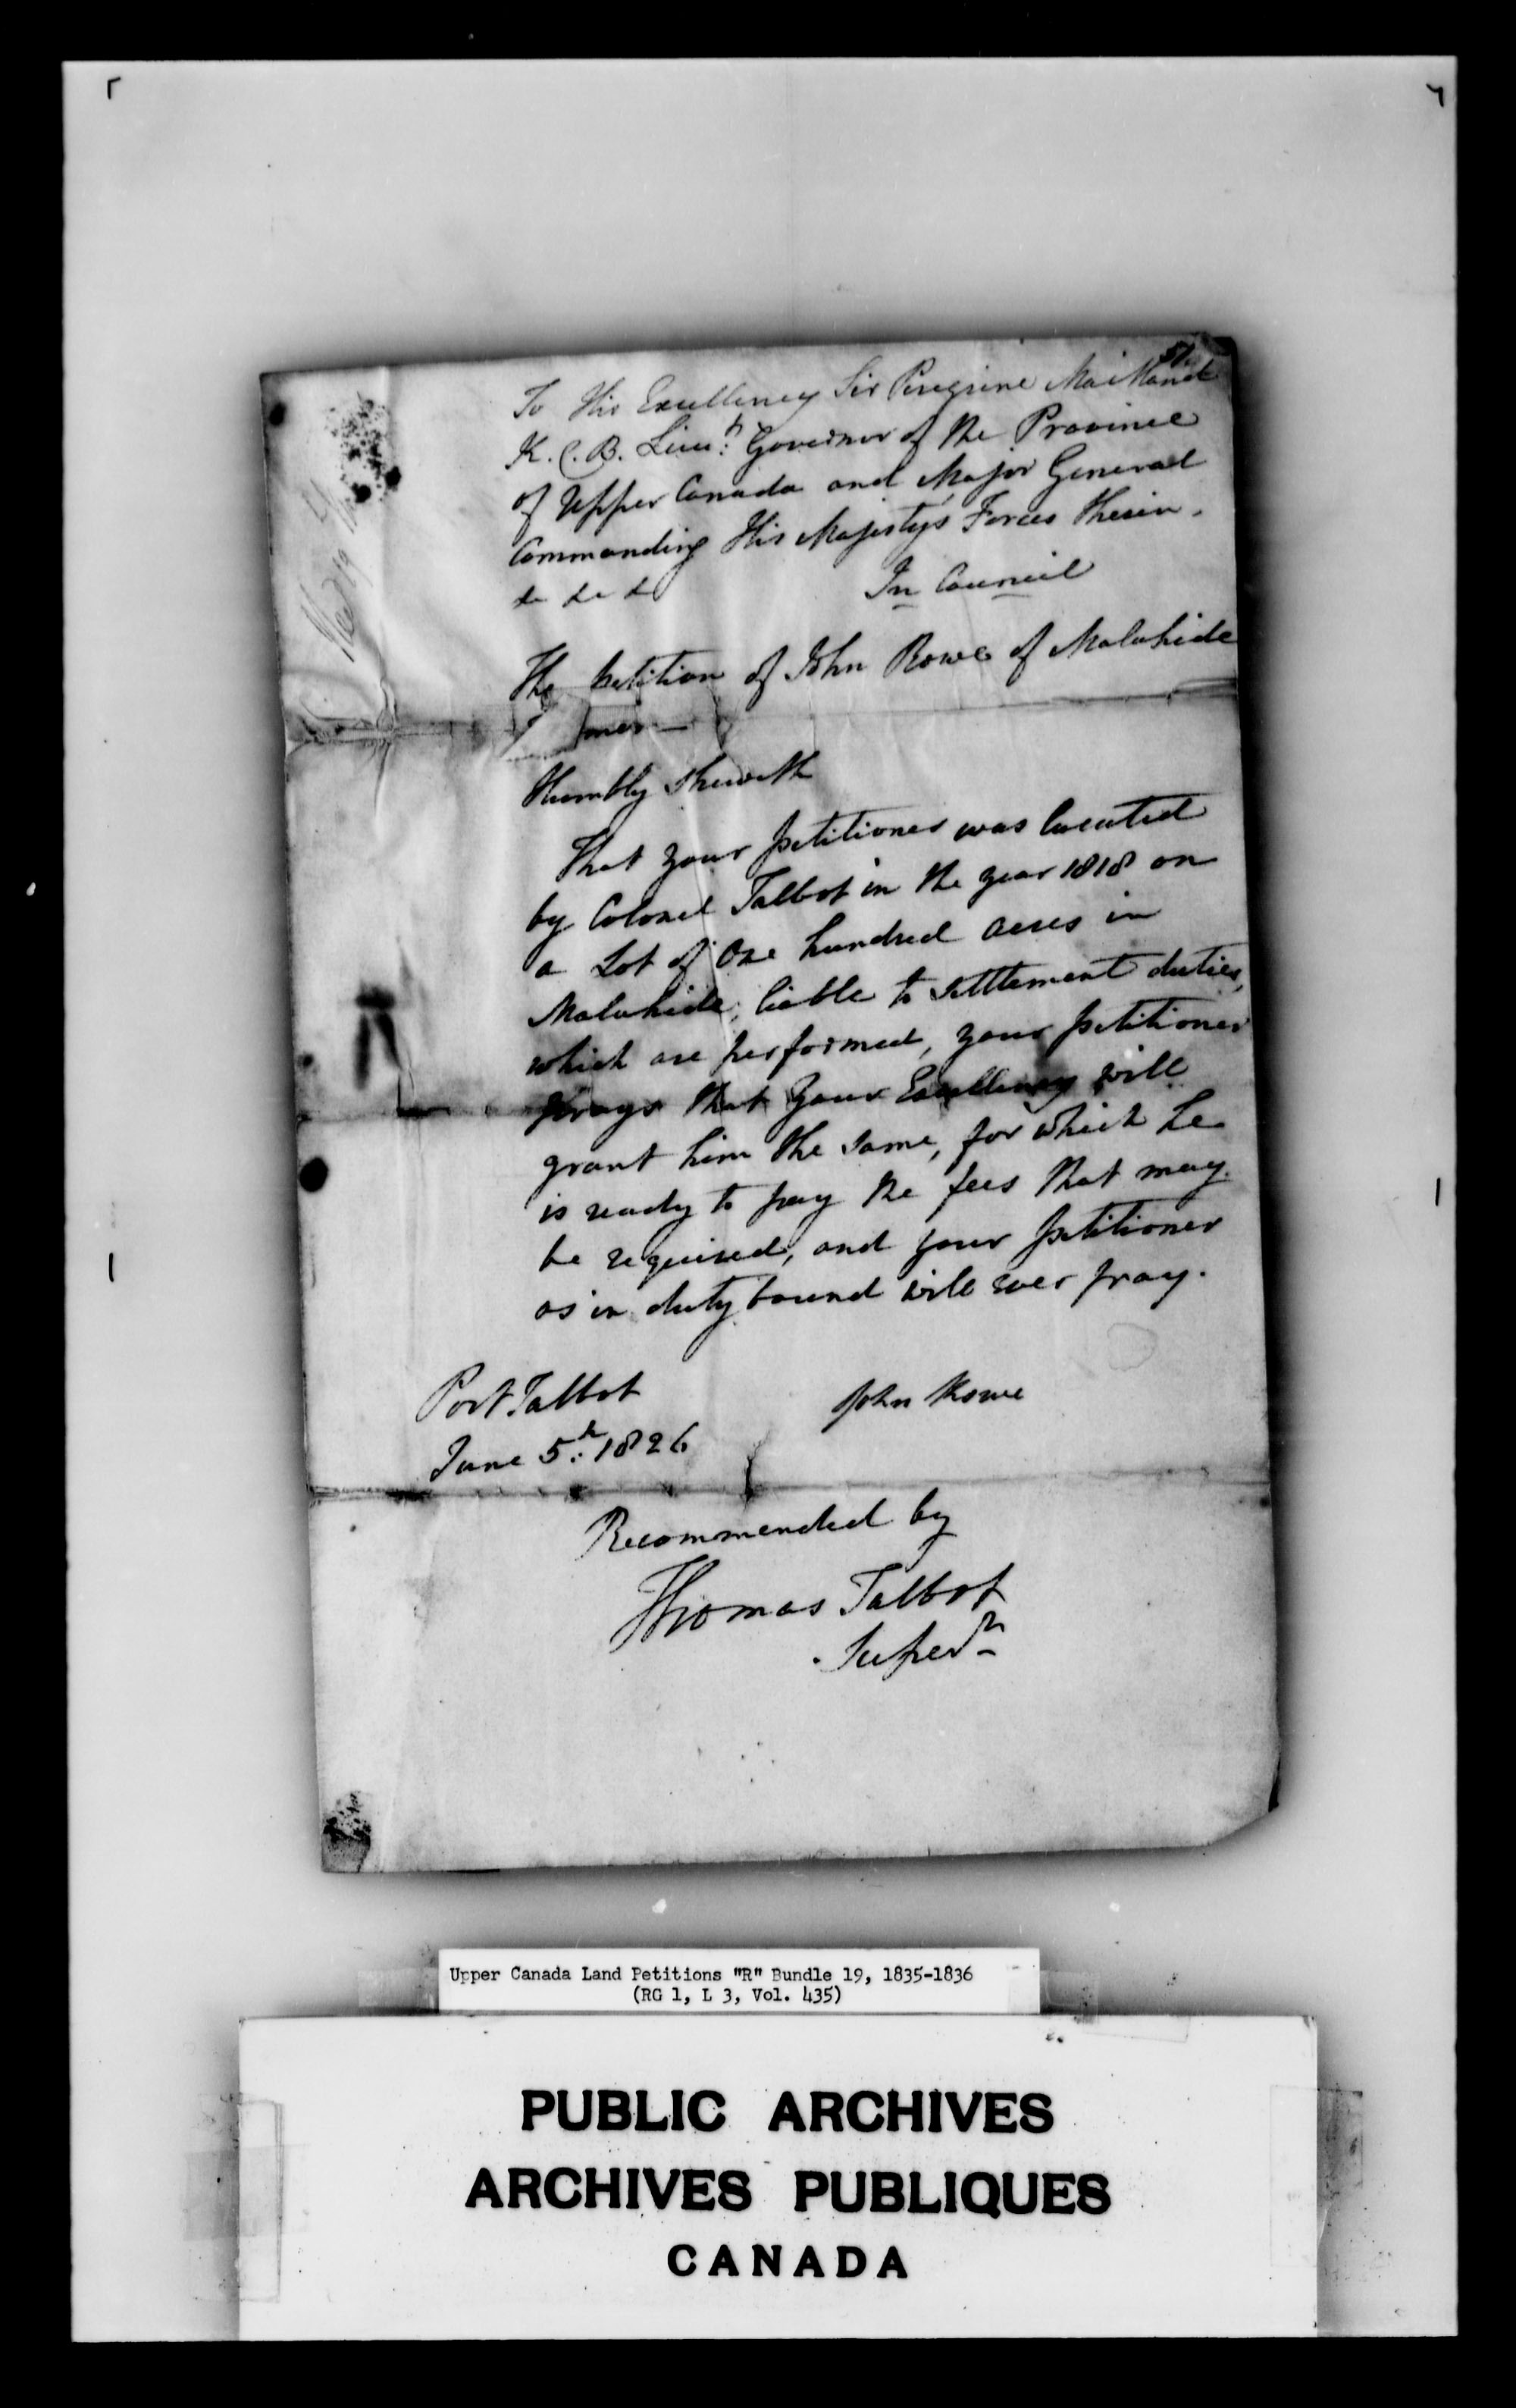 To His Excellency Sir Peregrine Maitland
K.C.B. Lieut: Governor of the Province
of Upper Canada and Major General
Commanding His Majesty's Forces therein.
&c &c &c In Council
The petition of John Rowe of Malahide
Humbly Sheweth
That your petitioner was located
by Colonel Talbot in the year 1818 on
a Lot of One hundred acres in
Malahide, liable to settlement duties,
which are performed, your petitioner
prays that your Excellency will
grant him the same, for which he
is ready to pay the fees that may
be required, and your petitioner
as in duty bound will ever pray.
Port Talbot John Rowe
June 5th: 1826
Recommended by
Thomas Talbot
Upper Canada Land Petitions "R" Bundle 19, 1835-1836
(RG 1, L 3, Vol. 435)
PUBLIC ARCHIVES
ARCHIVES PUBLIQUES
CANADA